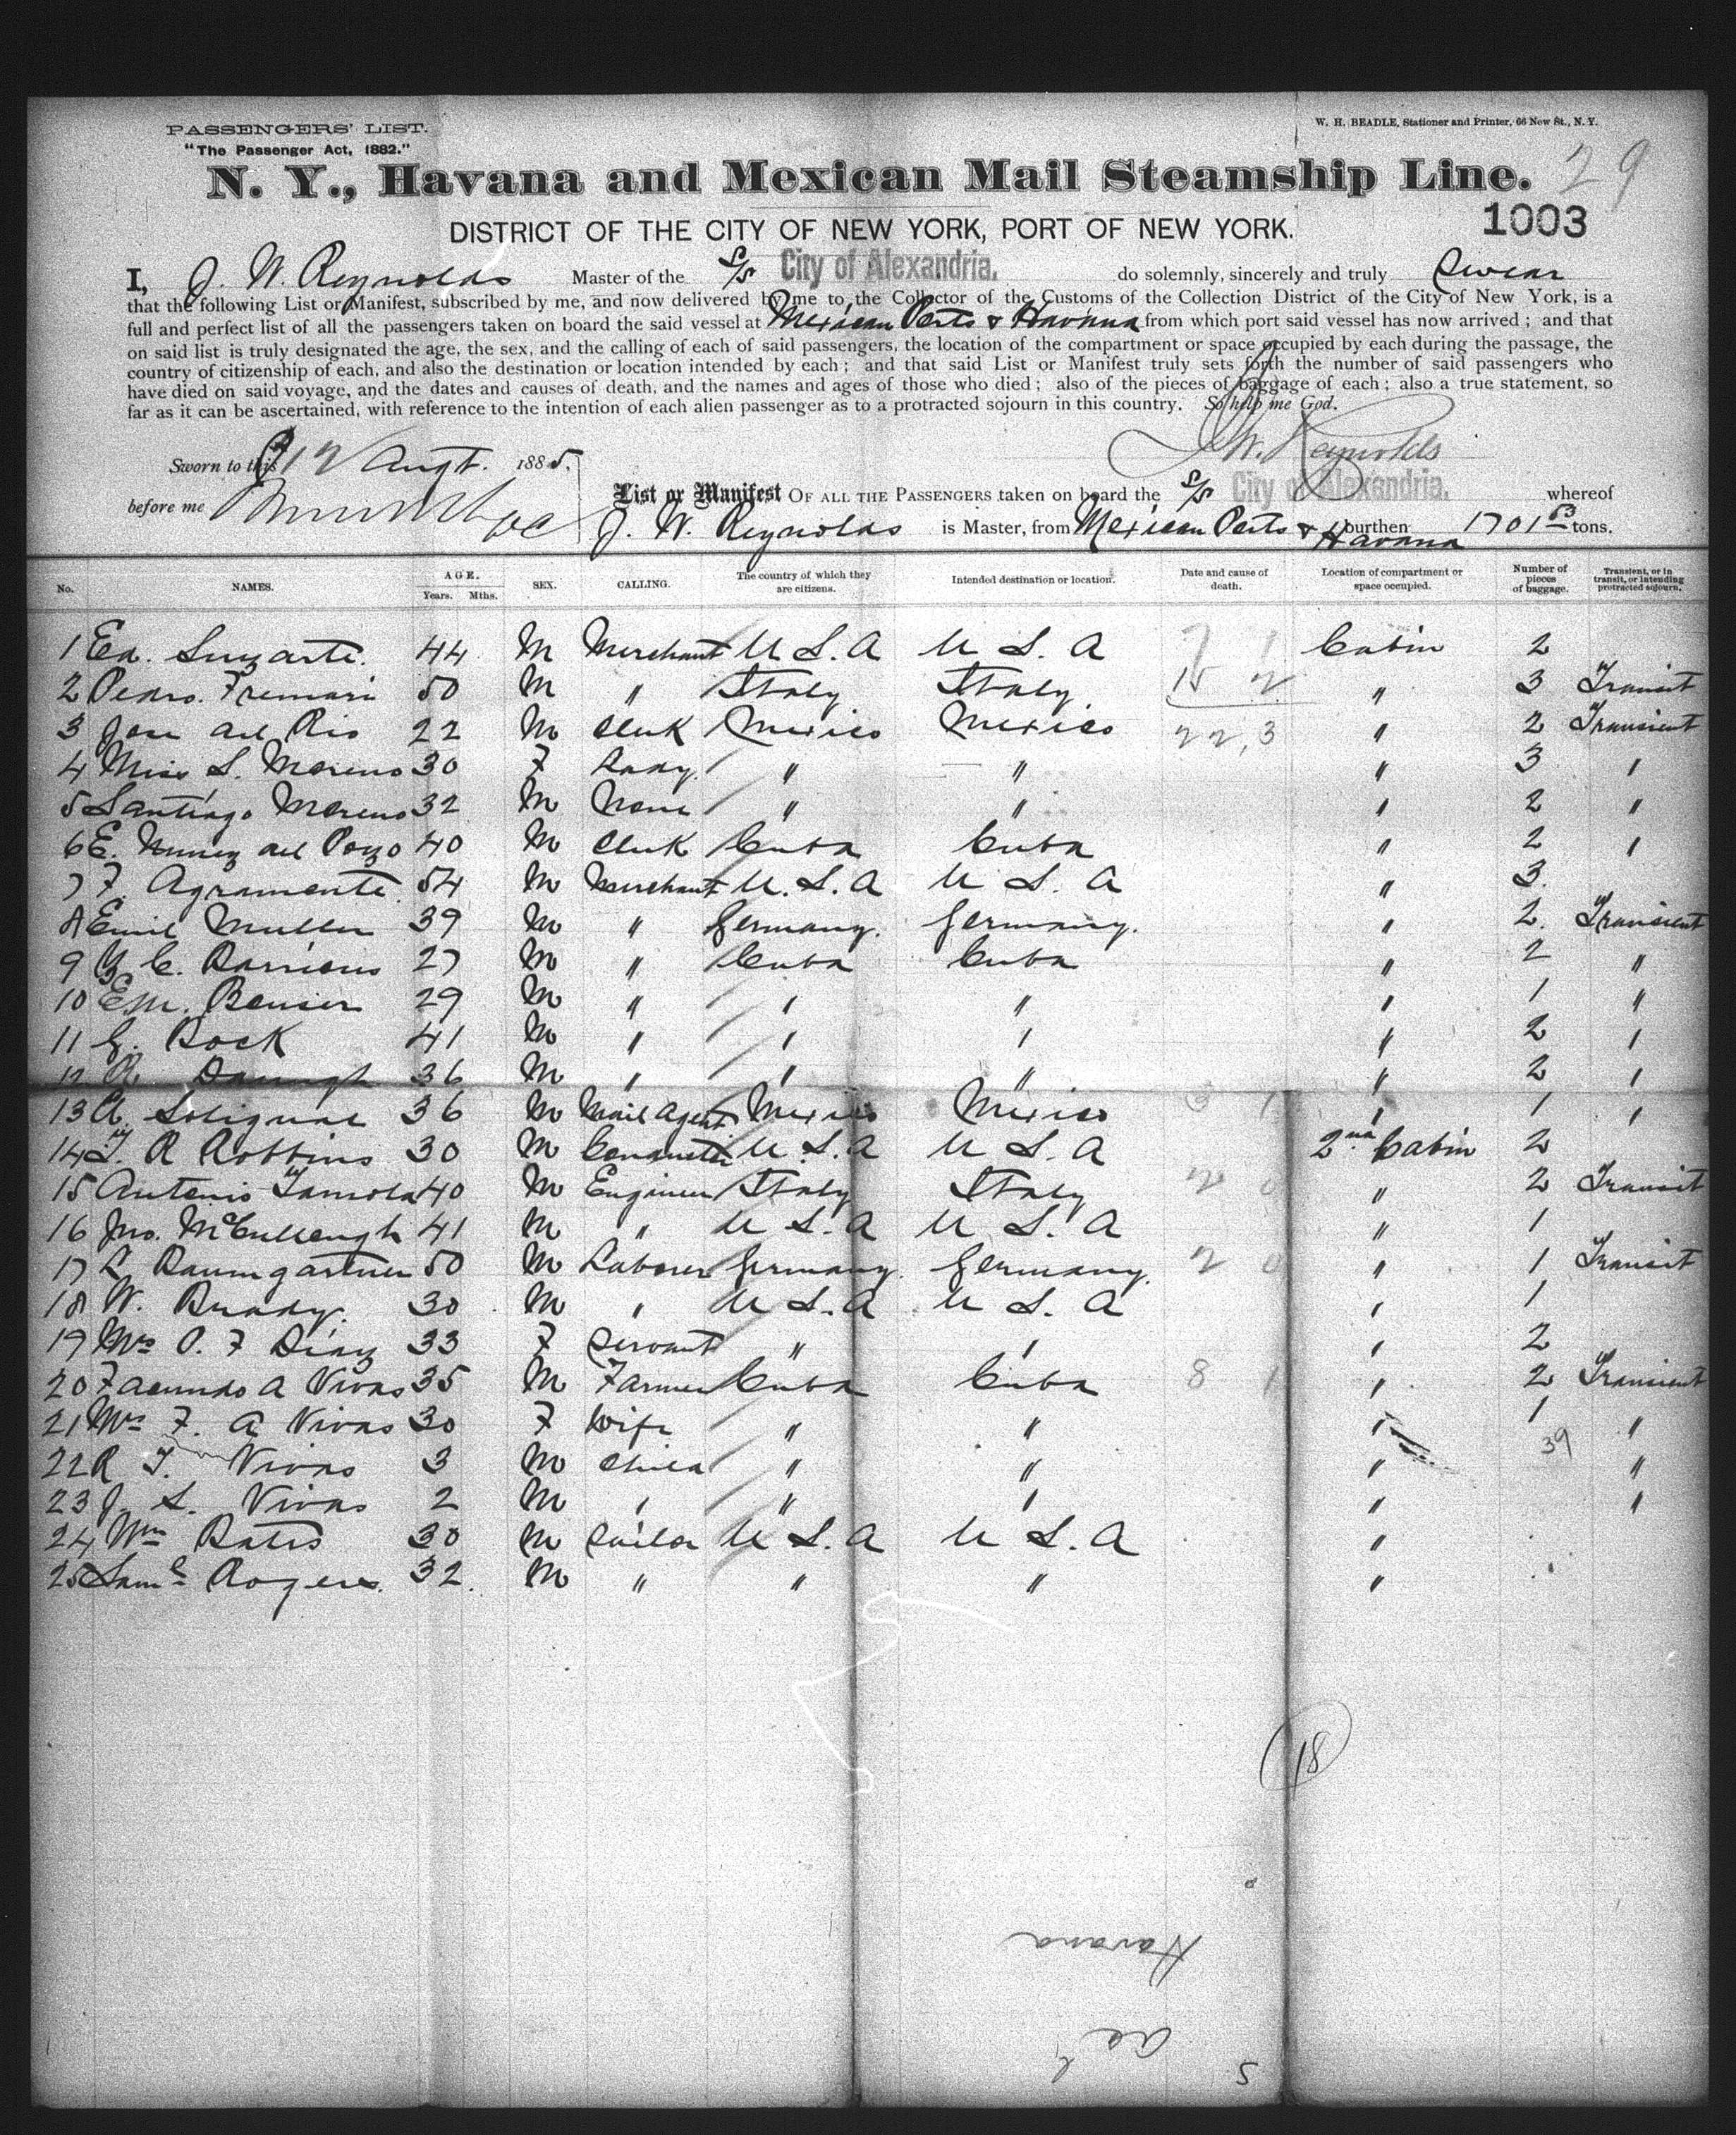 PASSENGERS' LIST.
"The Passenger Act, 1882."
W. H. BEADLE, Stationer and Printer, 66 New St., N. Y.
N. Y., Havana and Mexican Mail Steamship Line. 29
DISTRICT OF THE CITY OF NEW YORK, PORT OF NEW YORK. 1003
I, J. W. Reynolds Master of the S/S City of Alexandria. do solemnly, sincerely and truly swear
that the following List or Manifest, subscribed by me, and now delivered by me to the Collector of the Customs of the Collection District of the City of New York, is a
full and perfect list of all the passengers taken on board the said vessel at Mexican Ports & Havana from which port said vessel has now arrived; and that
on said list is truly designated the age, the sex, and the calling of each of said passengers, the location of the compartment or space occupied by each during the passage, the
country of citizenship of each, and also the destination or location intended by each; and that said List or Manifest truly sets forth the number of said passengers who
have died on said voyage, and the dates and causes of death, and the names and ages of those who died; also of the pieces of baggage of each; also a true statement, so
far as it can be ascertained, with reference to the intention of each alien passenger as to a protracted sojourn in this country. So help me God.
J. W. Reynolds
Sworn to this 12 Augt. 1885.
before me
List or Manifest OF ALL THE PASSENGERS taken on board the S/S City of Alexandria. whereof
J. W. Reynolds is Master, from Mexican Ports & Havana burthen 1701 53 tons.
No. NAMES. AGE. Years. Mths. SEX. CALLING. The country of which they are citizens. Intended destination or location. Date and cause of death. Location of compartment or space occupied. Number of pieces of baggage. Transient, or in transit, or intending protracted sojourn.
1 Ed. 44 M Merchant U S. A U S. A Cabin 2
2 Pedro. 50 M " Italy Italy 15 2 " 3 Transit
3 Jose del Rio 22 M Clerk Mexico Mexico 22, 3 " 2 Transient
4 Miss S. Moreno 30 F Lady " " " 3 "
5 Santiago Moreno 32 M None " " " 2 "
6 E. Nunez del Pozo 40 M Clerk Cuba Cuba " 2 "
7 F. Agramonte. 54 M Merchant U. S. A U S. A " 3.
8 Emil Muller 39 M " Germany. Germany. " 2. Transient
9 C. Barrious 27 M " Cuba Cuba " 2 "
10 Em. 29 M " " " " 1 "
11 G. Bock 41 M " " " " 2 "
12 36 M " " " " 2 "
13 A. Solignac 36 M Mail Agent Mexico Mexico " 1 "
14 T. R Robbins 30 M Conductor U. S. A U S. A 2nd Cabin 2
15 Antonio 40 M Engineer Italy Italy 2 0 " 2 Transit
16 Jno. McCullough 41 M " U S. A U S. A " 1
17 L Baumgartner 50 M Laborer Germany. Germany. 2 0 " 1 Transit
18 W. Brady. 30 M " U S. A U S. A " 1
19 Mrs P. F Diaz 33 F Servant " " " 2
20 Facundo A Vivas 35 M Farmer Cuba Cuba 8 1 " 2 Transient
21 Mrs F. A Vivas 30 F Wife " " " 1 "
22 R T. Vivas 3 M Child " " " 39 "
23 J. S. Vivas 2 M " " " " "
24 Wm Bates 30 M Sailor U S. A U S. A "
25 Saml Rogers. 32. M " " " "
18
Havana
S